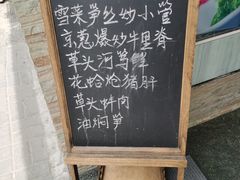 雪菜笋丝炒小管
京葱爆炒牛里脊
草头河笃鲜
花蛤炝猪肝
草头蚌肉
油焖笋